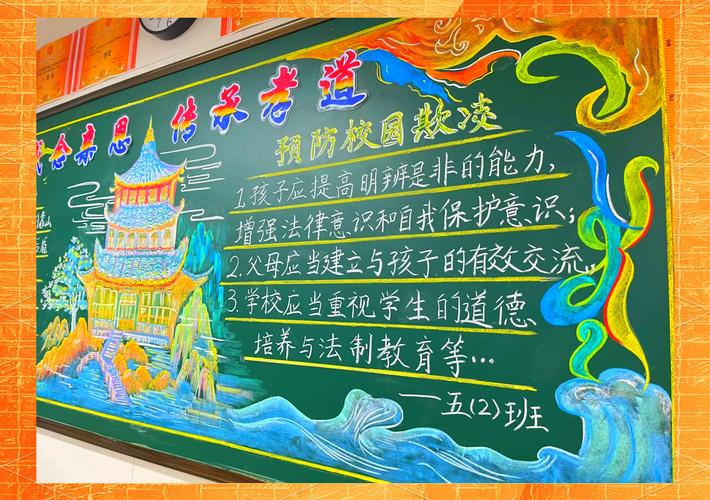 念亲恩 传承孝道
预防校园欺凌
1.孩子应提高明辨是非的能力,
增强法律意识和自我保护意识;
2.父母应当建立与孩子的有效交流。
3.学校应当重视学生的道德
培养与法制教育等...
——五(2)班